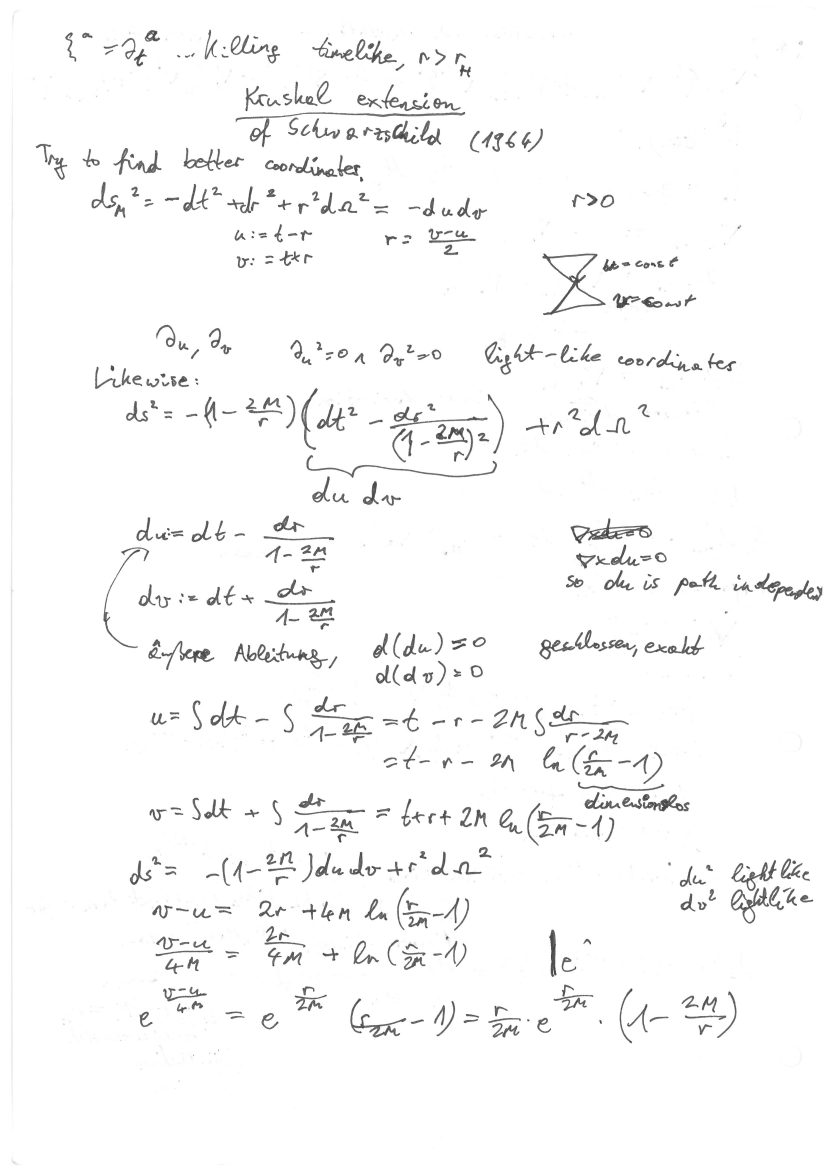 ξᵃ = ∂ₜᵃ ... Killing timelike, r > r_H
Kruskal extension
of Schwarzschild (1964)
Try to find better coordinates.
ds_M² = -dt² + dr² + r²dΩ² = -du dv r>0
u := t-r r = (v-u)/2
v := t+r
u = const
v = const
∂u, ∂v ∂u² = 0 ∧ ∂v² = 0 light-like coordinates
Likewise:
ds² = -(1 - 2M/r) (dt² - dr²/(1 - 2M/r)²) + r²dΩ²
du dv
du := dt - dr/(1 - 2M/r)
∇×du=0
dv := dt + dr/(1 - 2M/r) so du is path independen
äußere Ableitung, d(du) = 0 geschlossen, exakt
d(dv) = 0
u = ∫dt - ∫ dr/(1 - 2M/r) = t - r - 2M ∫ dr/(r-2M)
= t - r - 2M ln(r/2M - 1)
dimensionslos
v = ∫dt + ∫ dr/(1 - 2M/r) = t+r+ 2M ln(r/2M - 1)
ds² = -(1 - 2M/r) du dv + r²dΩ² du² lightlike
dv² lightlike
v-u = 2r + 4M ln(r/2M - 1)
(v-u)/4M = 2r/4M + ln(r/2M - 1) |e^
e^((v-u)/4M) = e^(r/2M) (r/2M - 1) = r/2M · e^(r/2M) · (1 - 2M/r)